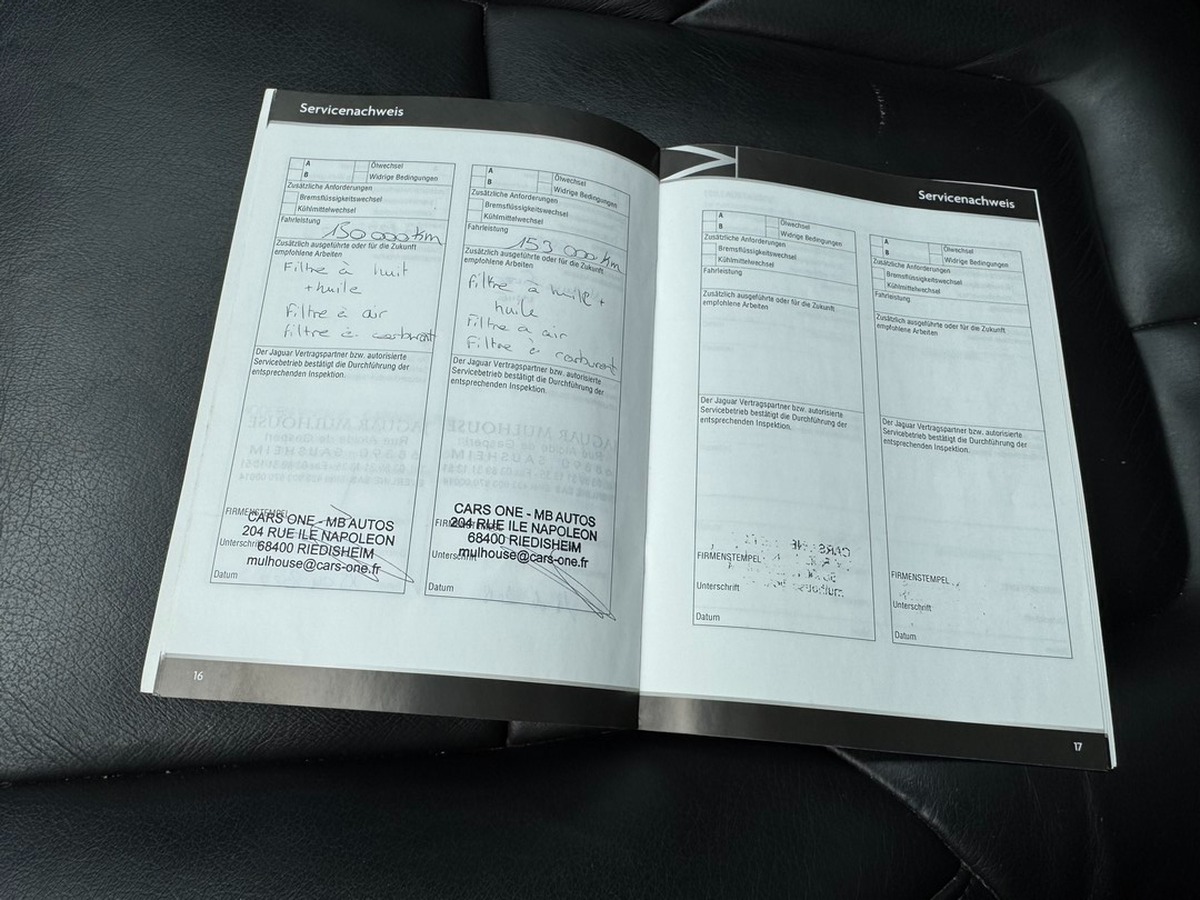 Servicenachweis
A
Ölwechsel
B
Widrige Bedingungen
Zusätzliche Anforderungen
Bremsflüssigkeitswechsel
Kühlmittelwechsel
Fahrleistung
130 000 km
Zusätzlich ausgeführte oder für die Zukunft
empfohlene Arbeiten
Filtre à huit
+ huile
Filtre à air
Filtre à carburant
Der Jaguar Vertragspartner bzw. autorisierte
Servicebetrieb bestätigt die Durchführung der
entsprechenden Inspektion.
FIRMENSTEMPEL
CARS ONE - MB AUTOS
204 RUE ILE NAPOLEON
Unterschrift
68400 RIEDISHEIM
mulhouse@cars-one.fr
Datum
A
Ölwechsel
B
Widrige Bedingungen
Zusätzliche Anforderungen
Bremsflüssigkeitswechsel
Kühlmittelwechsel
Fahrleistung
153 000 km
Zusätzlich ausgeführte oder für die Zukunft
empfohlene Arbeiten
Filtre à huile +
huile
Filtre à air
Filtre à carburant
Der Jaguar Vertragspartner bzw. autorisierte
Servicebetrieb bestätigt die Durchführung der
entsprechenden Inspektion.
CARS ONE - MB AUTOS
204 RUE ILE NAPOLEON
68400 RIEDISHEIM
Unterschrift
mulhouse@cars-one.fr
Datum
16
Servicenachweis
A
Ölwechsel
B
Widrige Bedingungen
Zusätzliche Anforderungen
Bremsflüssigkeitswechsel
Kühlmittelwechsel
Fahrleistung
Zusätzlich ausgeführte oder für die Zukunft
empfohlene Arbeiten
Der Jaguar Vertragspartner bzw. autorisierte
Servicebetrieb bestätigt die Durchführung der
entsprechenden Inspektion.
FIRMENSTEMPEL
Unterschrift
Datum
A
Ölwechsel
B
Widrige Bedingungen
Zusätzliche Anforderungen
Bremsflüssigkeitswechsel
Kühlmittelwechsel
Fahrleistung
Zusätzlich ausgeführte oder für die Zukunft
empfohlene Arbeiten
Der Jaguar Vertragspartner bzw. autorisierte
Servicebetrieb bestätigt die Durchführung der
entsprechenden Inspektion.
FIRMENSTEMPEL
Unterschrift
Datum
17